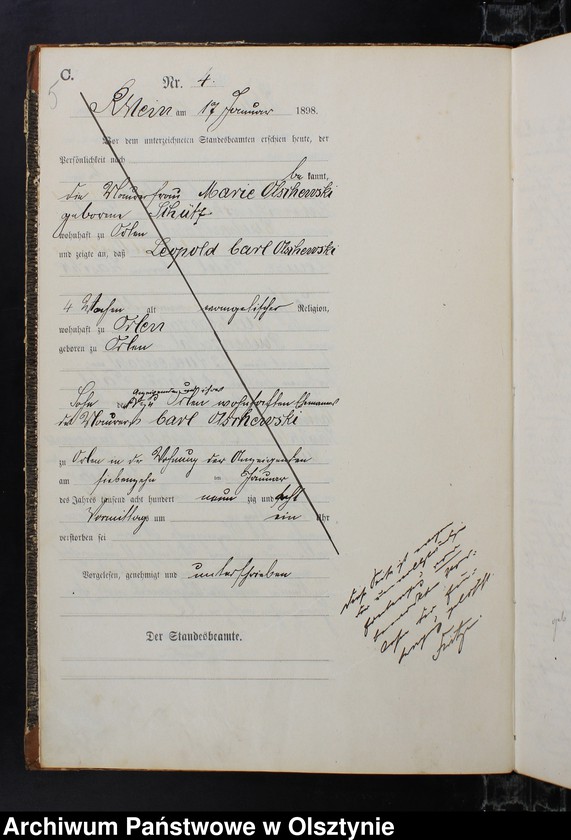 C.
5
Nr. 4.
Rhein am 17 Januar 1898.
Vor dem unterzeichneten Standesbeamten erschien heute, der
Persönlichkeit nach
be kannt,
die Maurerfrau Marie Olschewski
geborene Schütz
wohnhaft zu Orlen
und zeigte an, daß Leopold Carl Olschewski
4 Wochen alt evangelischer Religion,
wohnhaft zu Orlen
geboren zu Orlen
Anzeigenden und ihres
Sohn der zu Orlen wohnhaften Ehemannes
des Maurers Carl Olschewski
zu Orlen in der Wohnung der Anzeigenden
am siebenzehn ten Januar
des Jahres tausend acht hundert neun zig und acht
Vormittags um ein Uhr
verstorben sei
Vorgelesen, genehmigt und unterschrieben
Der Standesbeamte.
Diese Seite ist
der
geb
Archiwum Państwowe w Olsztynie